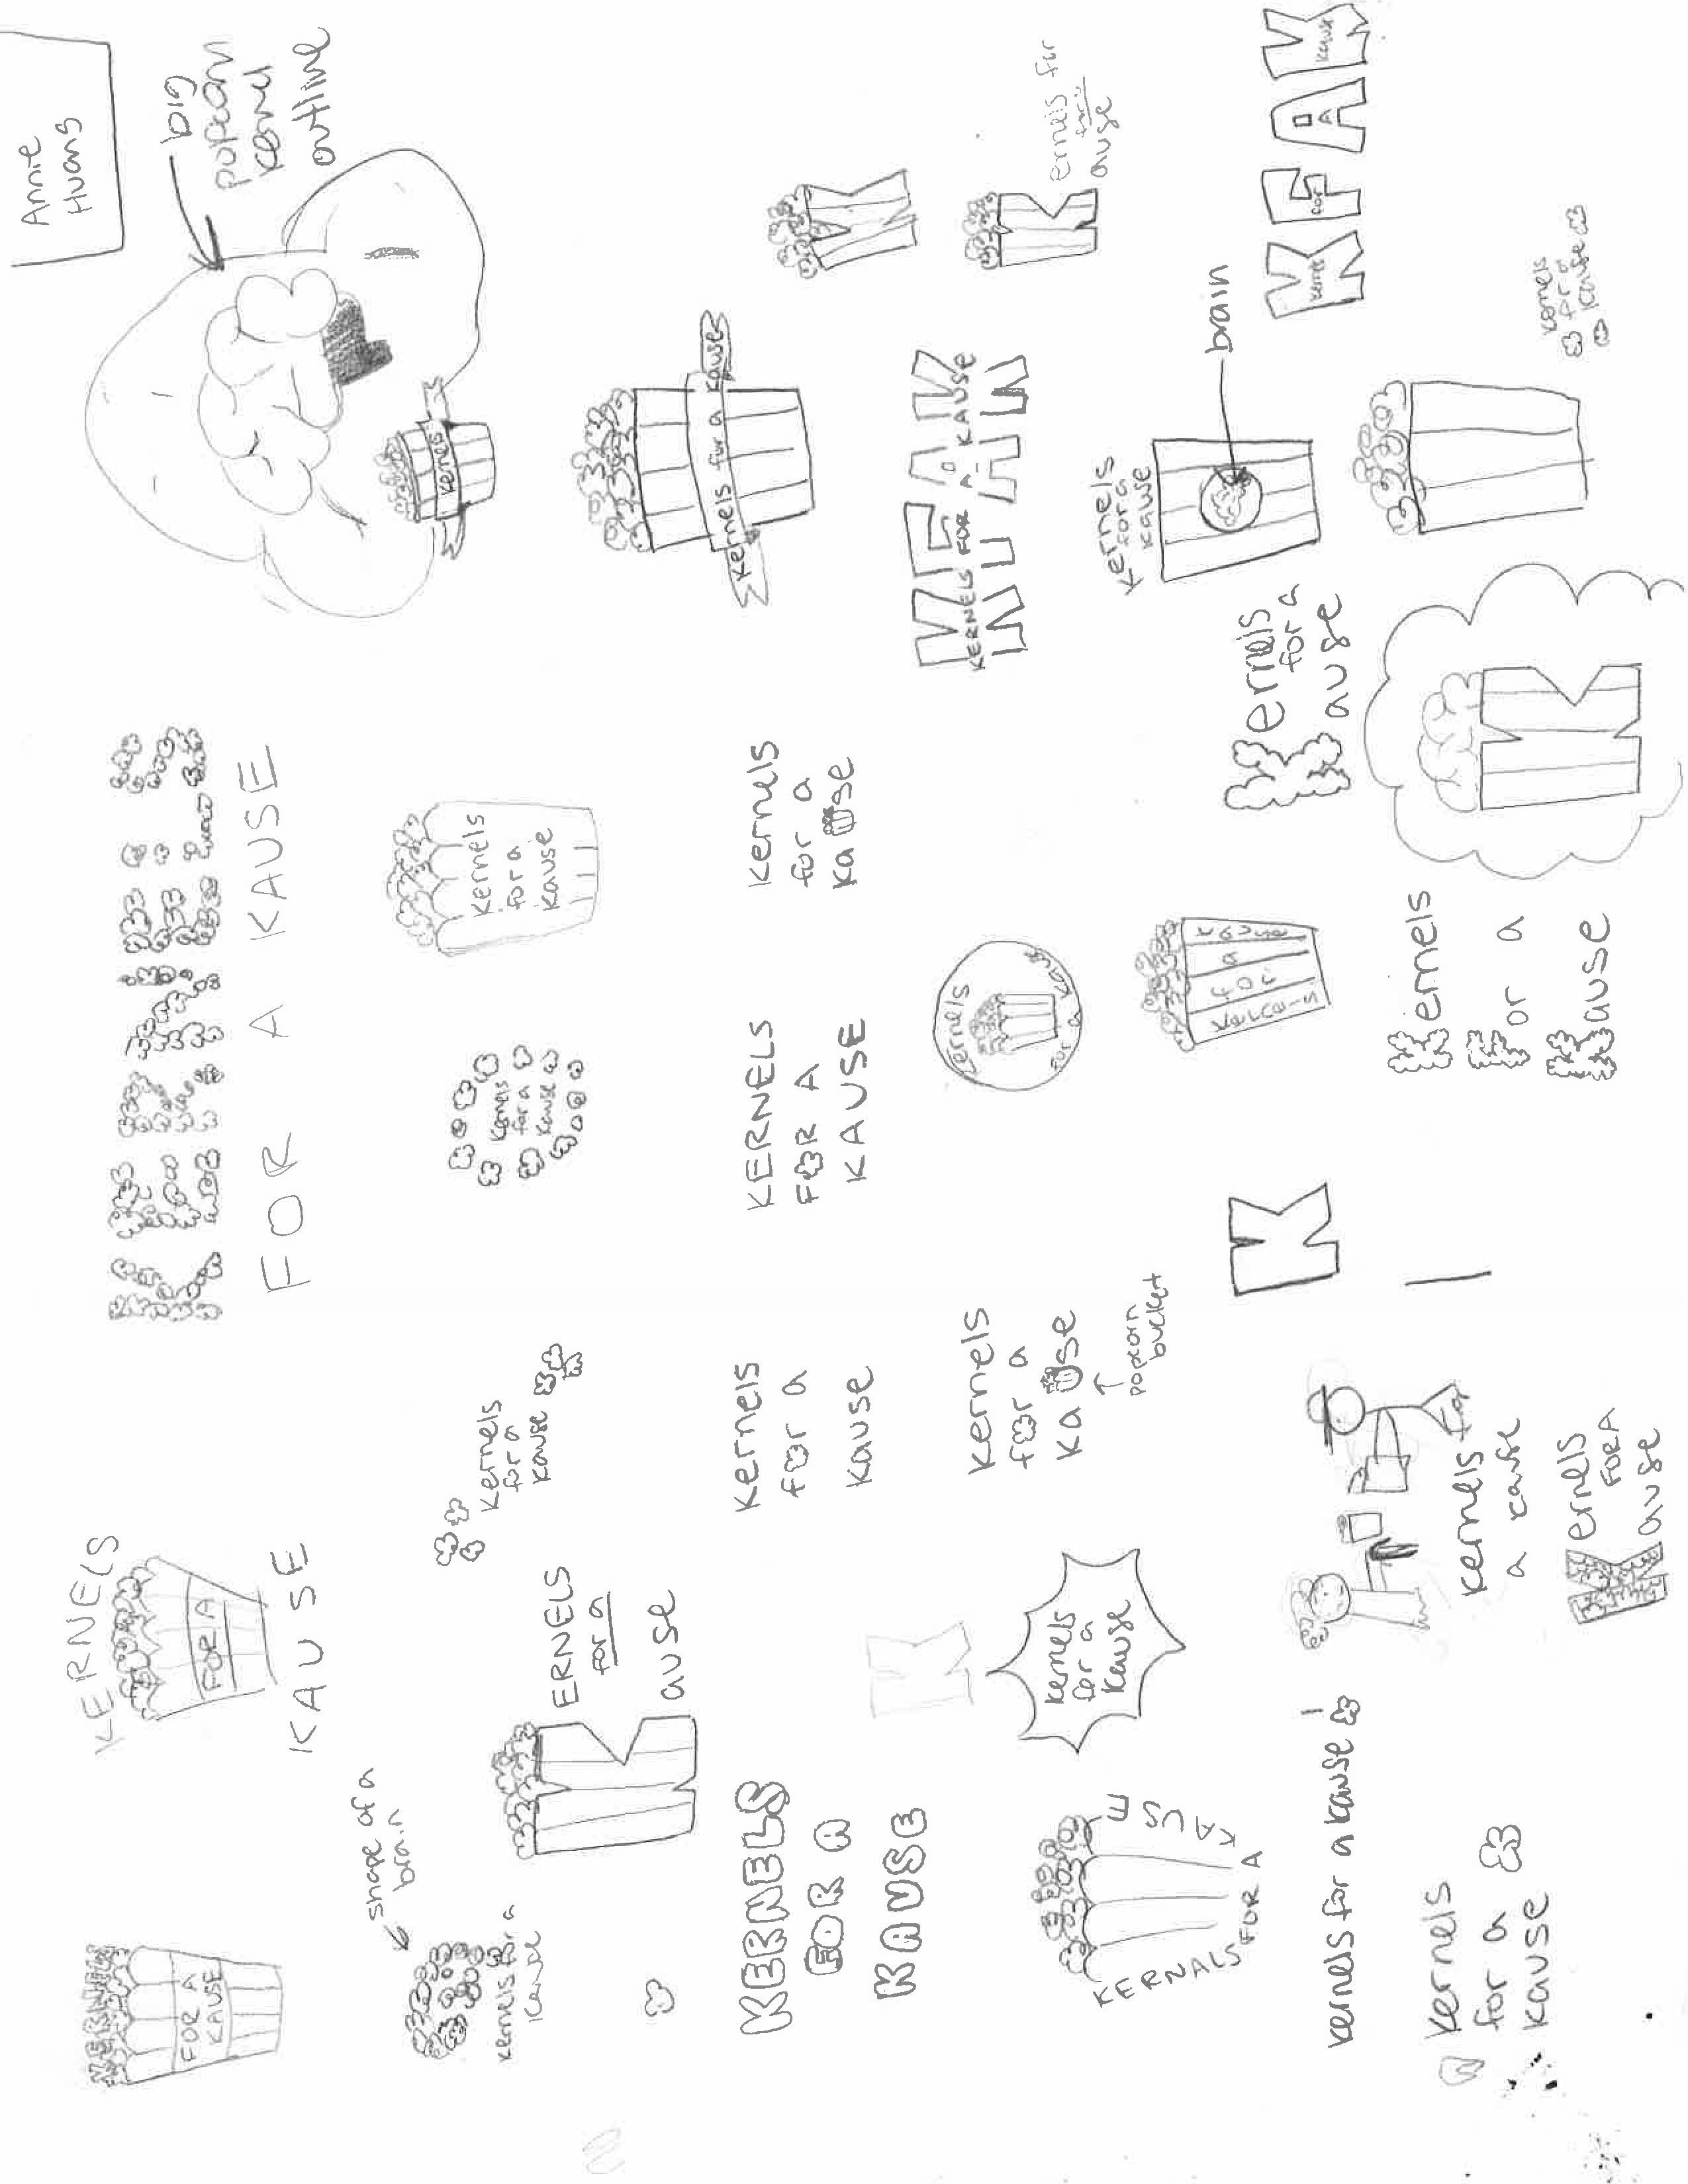 Annie
Huang
KERNELS
FOR A
KAUSE
KERNELS
FOR A
KAUSE
KERNELS
FOR A KAUSE
big
popcorn
kernel
outline
kernels
shape of a
brain
kernels for a
kause
KERNELS
for a
ause
kernels
for a
kause
kernels
for a
kause
kernels
for a
kause
kernels for a kause
KERNELS
FOR A
KAUSE
kernels
for a
kause
KERNELS
FOR A
KAUSE
kernels
for a
kause
K
K
ernels for
ause
KERNALS FOR A KAUSE
K
kernels
for a
kause
kernels
for a
kause
popcorn
bucket
kernels for a kause
KFAK
KERNELS FOR A KAUSE
kernels for a kause
kernels
for a
kause
kernels
a cause
K
kernels
for
a
kause
Kernels
for a
ause
kernels
for a
kause
brain
KFAK
kernels
for
A
kause
kernels
for a
kause
Kernels
FOR A
Kause
Kernels
For a
Kause
K
kernels
for a
kause